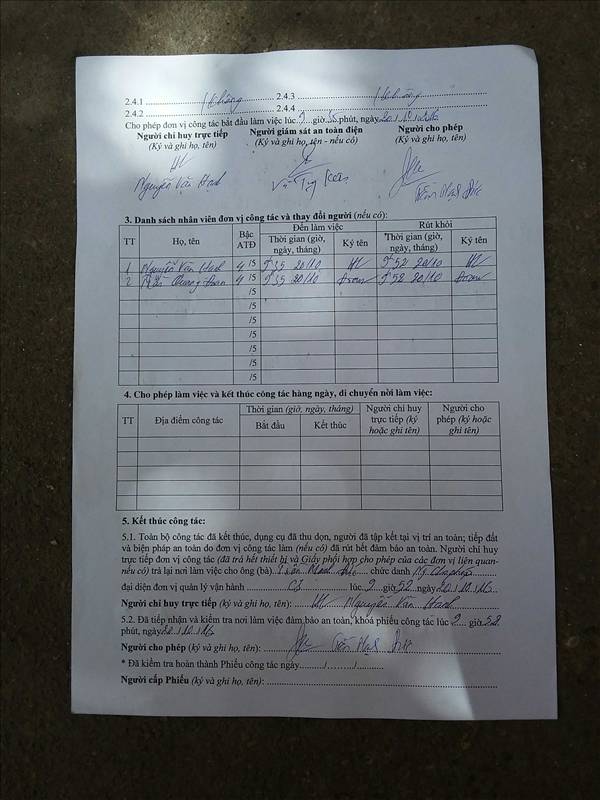 2.4.1 Không 2.4.3 Không
2.4.2 2.4.4
Cho phép đơn vị công tác bắt đầu làm việc lúc giờ 35 phút, ngày 20/10/2016
Người chỉ huy trực tiếp Người giám sát an toàn điện Người cho phép
(Ký và ghi họ, tên) (Ký và ghi họ, tên - nếu có) (Ký và ghi họ, tên)
Nguyễn Văn Trần Mạnh Đức
3. Danh sách nhân viên đơn vị công tác và thay đổi người (nếu có):
TT Họ, tên Bậc ATĐ Đến làm việc Rút khỏi
Thời gian (giờ, ngày, tháng) Ký tên Thời gian (giờ, ngày, tháng) Ký tên
1 Nguyễn Văn 4/5 35 20/10 52 20/10
2 Trần Quang 4/5 35 20/10 52 20/10
/5
/5
/5
/5
/5
/5
/5
4. Cho phép làm việc và kết thúc công tác hàng ngày, di chuyển nơi làm việc:
TT Địa điểm công tác Thời gian (giờ, ngày, tháng) Người chỉ huy trực tiếp (ký hoặc ghi tên) Người cho phép (ký hoặc ghi tên)
Bắt đầu Kết thúc
5. Kết thúc công tác:
5.1. Toàn bộ công tác đã kết thúc, dụng cụ đã thu dọn, người đã tập kết tại vị trí an toàn; tiếp đất
và biện pháp an toàn do đơn vị công tác làm (nếu có) đã rút hết đảm bảo an toàn. Người chỉ huy
trực tiếp đơn vị công tác (đã trả hết thiết bị và Giấy phối hợp cho phép của các đơn vị liên quan-
nếu có) trả lại nơi làm việc cho ông (bà) Trần Mạnh Đức chức danh Ng Cho phép
đại diện đơn vị quản lý vận hành lúc giờ 52 ngày 20/10/16
Người chỉ huy trực tiếp (ký và ghi họ, tên): Nguyễn Văn
5.2. Đã tiếp nhận và kiểm tra nơi làm việc đảm bảo an toàn, khoá phiếu công tác lúc giờ 52
phút, ngày 20/10/16
Người cho phép (ký và ghi họ, tên): Trần Mạnh Đức
* Đã kiểm tra hoàn thành Phiếu công tác ngày / /
Người cấp Phiếu (ký và ghi họ, tên):